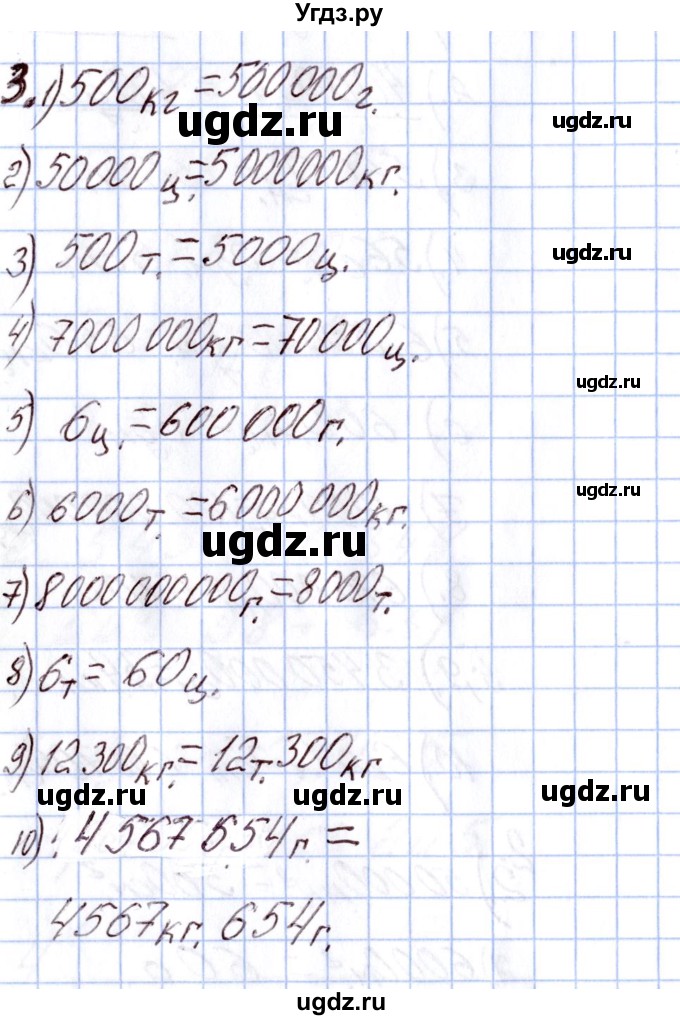 Угдз.ру
3. 1) 500кг = 500 000г.
ugdz.ru
ugdz.ru
2) 50000ц. = 5000000кг.
3) 500т. = 5000ц.
ugdz.ru
4) 7000 000кг = 70000ц.
ugdz.ru
5) 6ц. = 600 000г.
ugdz.ru
6) 6000т. = 6000 000кг.
ugdz.ru
7) 8000000000г. = 8000т.
8) 6т = 60ц.
9) 12300кг. = 12т. 300кг
ugdz.ru
ugdz.ru
ugdz.ru
10) 4567 654г. =
4567кг. 654г.
ugdz.ru